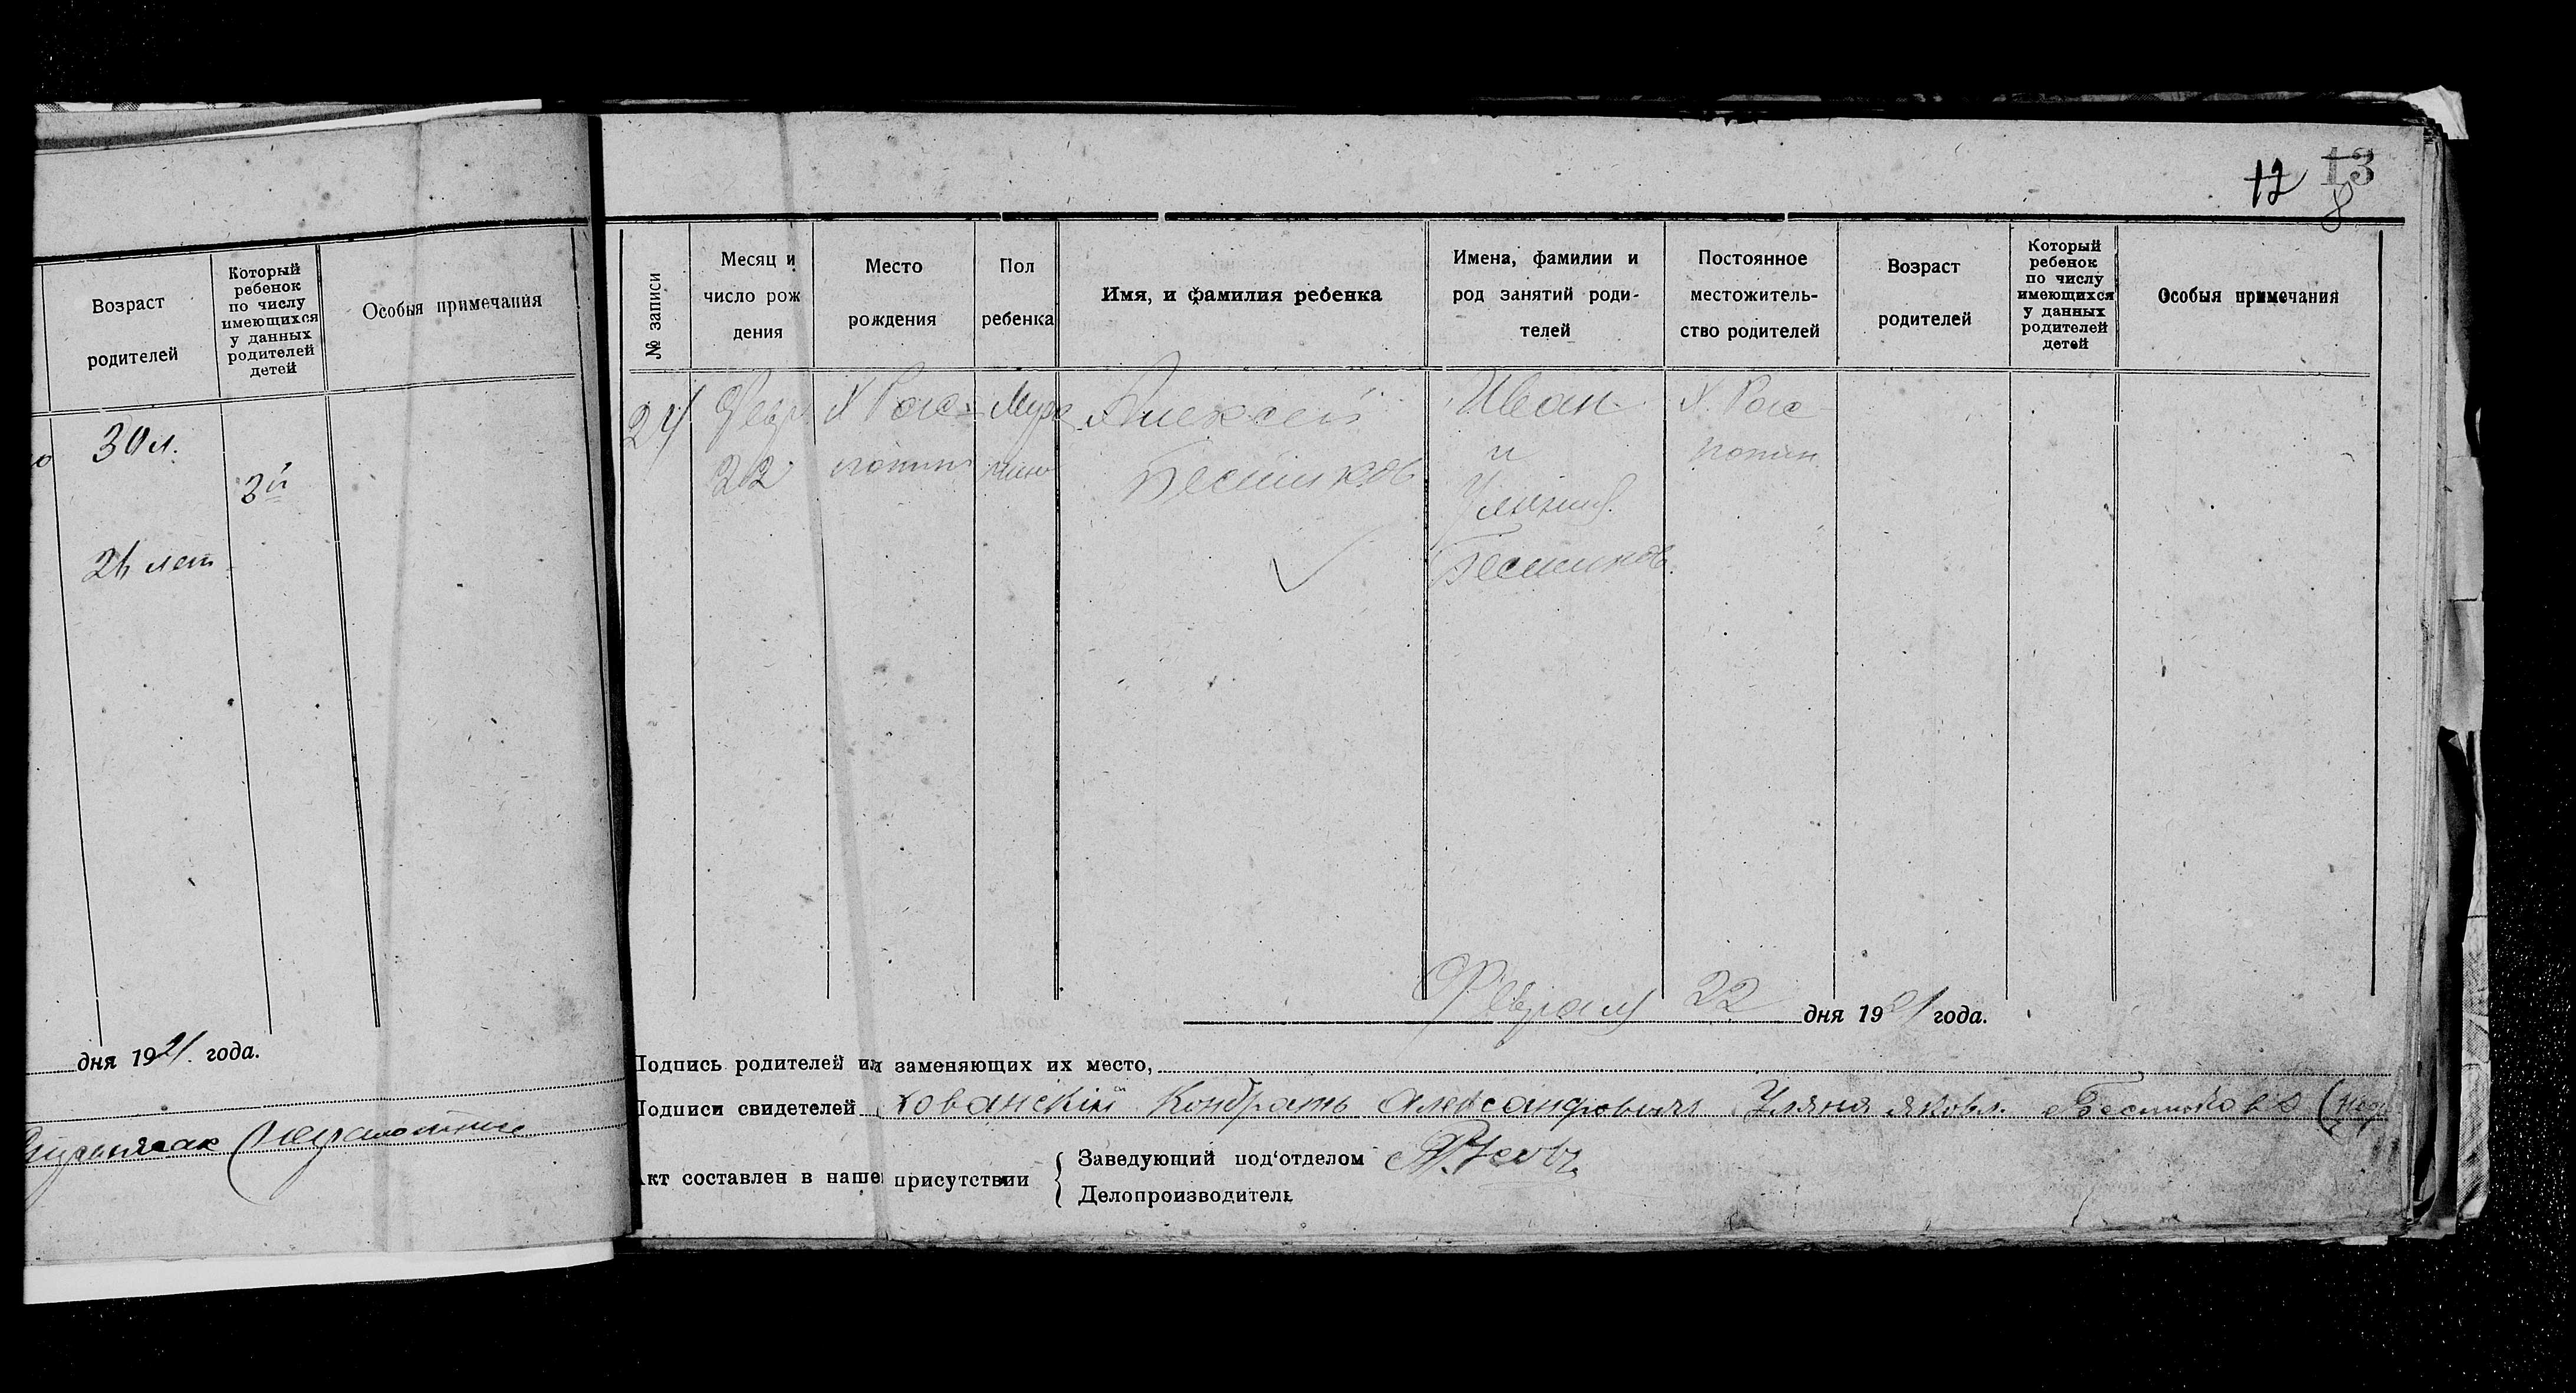 12 13
8
Возраст
родителей
Который
ребенок
по числу
имеющихся
у данных
родителей
детей
Особыя примечания
30 л.
3й
26 лет
дня 1921 года.
№ записи
Месяц и
число рож
дения
Место
рождения
Пол
ребенка
Имя, и фамилия ребенка
Имена, фамилии и
род занятий роди-
телей
Постоянное
местожитель-
ство родителей
Возраст
родителей
Который
ребенок
по числу
имеющихся
у данных
родителей
детей
Особыя примечания
24
Февр.
22
Х Рас-
попин
Муж
Алексей
Иван
и
Х. Рас-
попин
Февраля 22 дня 1921 года.
Подпись родителей ил заменяющих их место,
Подписи свидетелей Хованский Кондрать Александровичь Уляна Яковл.
Акт составлен в наше присутствии
Заведующий под'отделом
Делопроизводитель